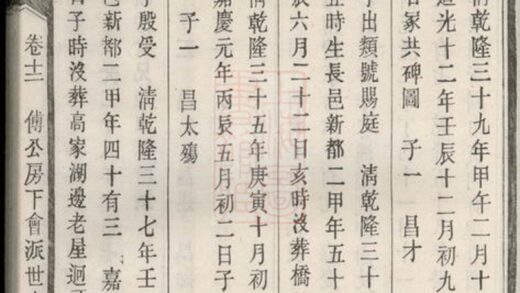 清乾隆三十九年甲午二月十
道光十二年壬辰十二月初九
名冢共碑圖 子一 昌才
子出類號賜庭 清乾隆三十
五時生長邑新都二甲年五十
辰六月二十二日亥時沒葬橋
清乾隆三十五年庚寅十月初
嘉慶元年丙辰五月初二日子
子一 昌太殤
子殷受 清乾隆三十七年壬
邑新都二甲年四十有三 嘉
日子時沒葬高家湖邊老屋迴
卷十二 傅公房下會派世